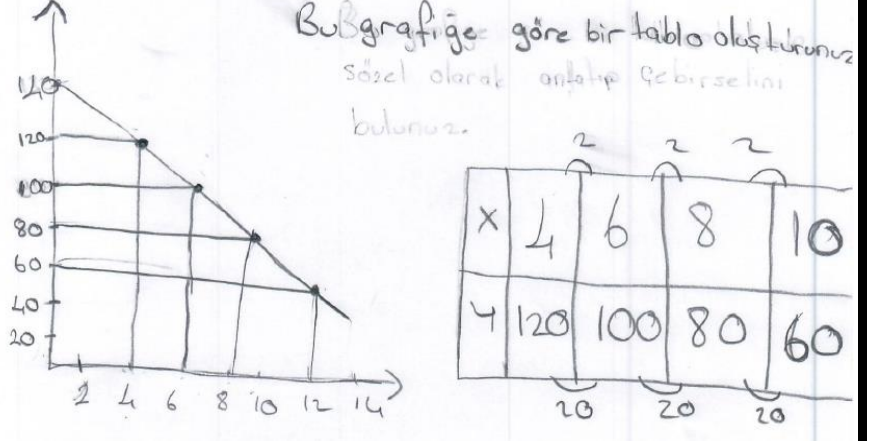 Bu grafiğe göre bir tablo oluşturunuz
sözel olarak anlatıp Cebirselini
bulunuz.
140
120
100
80
60
40
20
2 4 6 8 10 12 14
2 2 2
X 4 6 8 10
Y 120 100 80 60
20 20 20